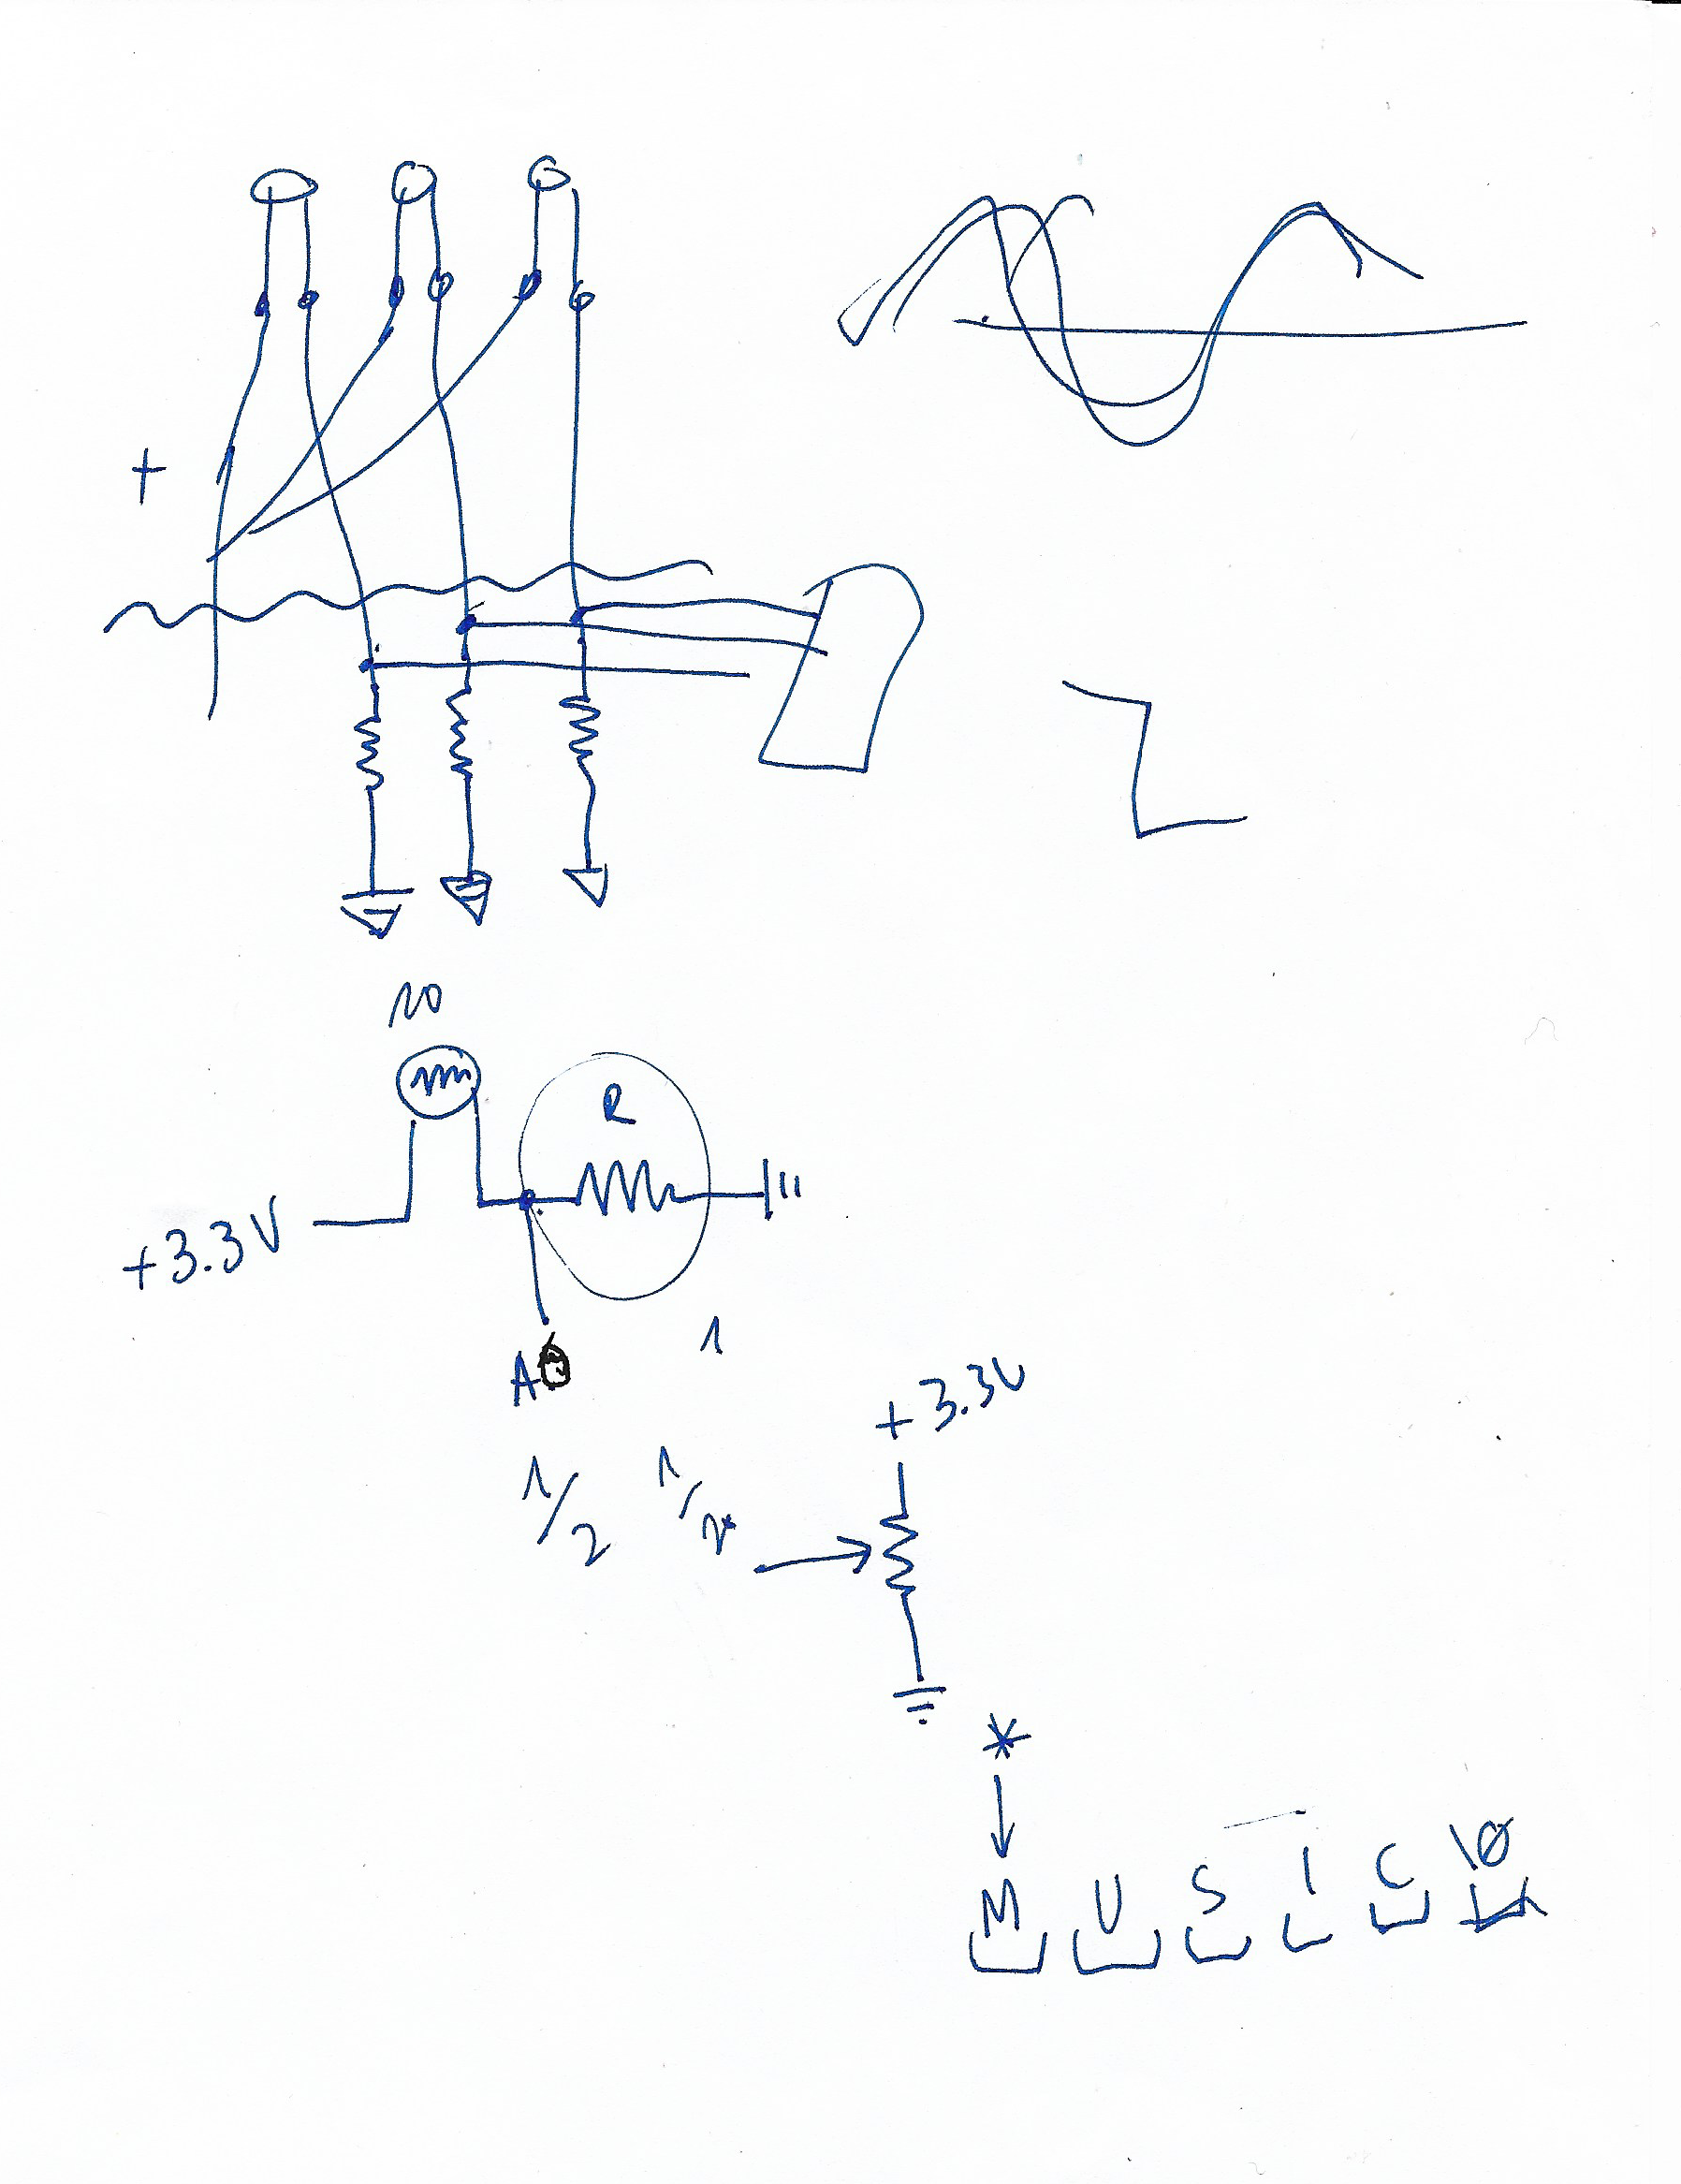 +
10
R
+3.3V
A0
1
+3.3V
1/2 1/2
*
M U S I C \0